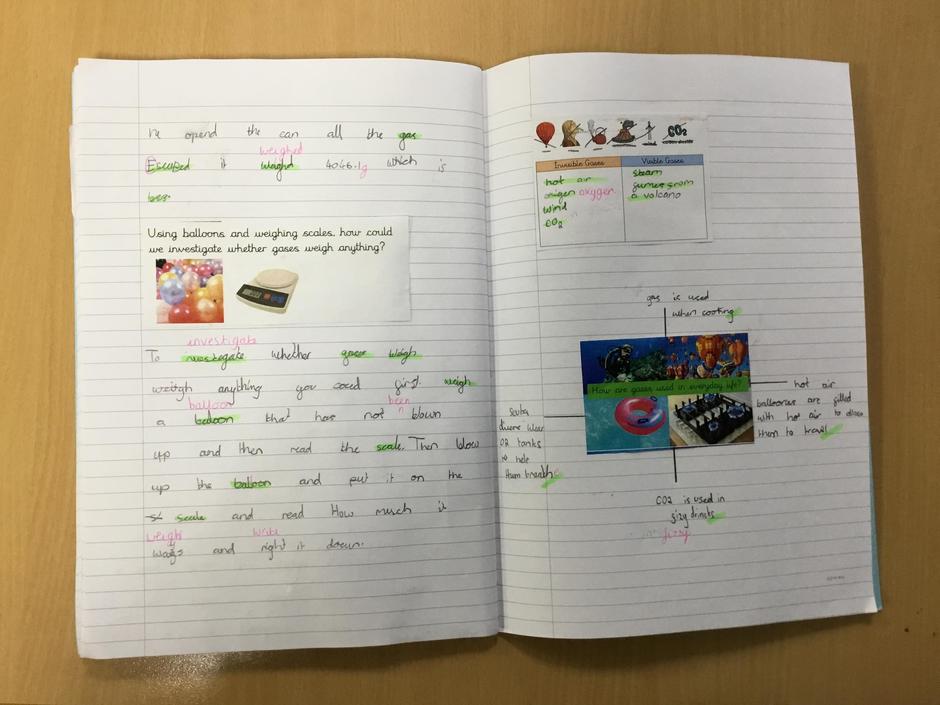 we opend the can all the gas
weighed
Escaped it weighd 4046.1g which is
less.
Using balloons and weighing scales, how could
we investigate whether gases weigh anything?
investigate
To investegate whether gases weigh
weitgh anything you coced first weigh
balloon been
a balloon that has not blown
up and then read the scale. Then blow
up the balloon and put it on the
scale and read How much it
weigh write
and right it down.
CO2
Invisible Gases Visible Gases
hot air
oxigen oxygen
wind
CO2
steam
fumes from
a volcano
gas is used
when cooking
How are gases used in everyday life?
hot air
balloons are filled
with hot air to allow
them to travel
Scuba
divers wear
O2 tanks
to help
them breath
CO2 is used in
fizy drinks
fizzy